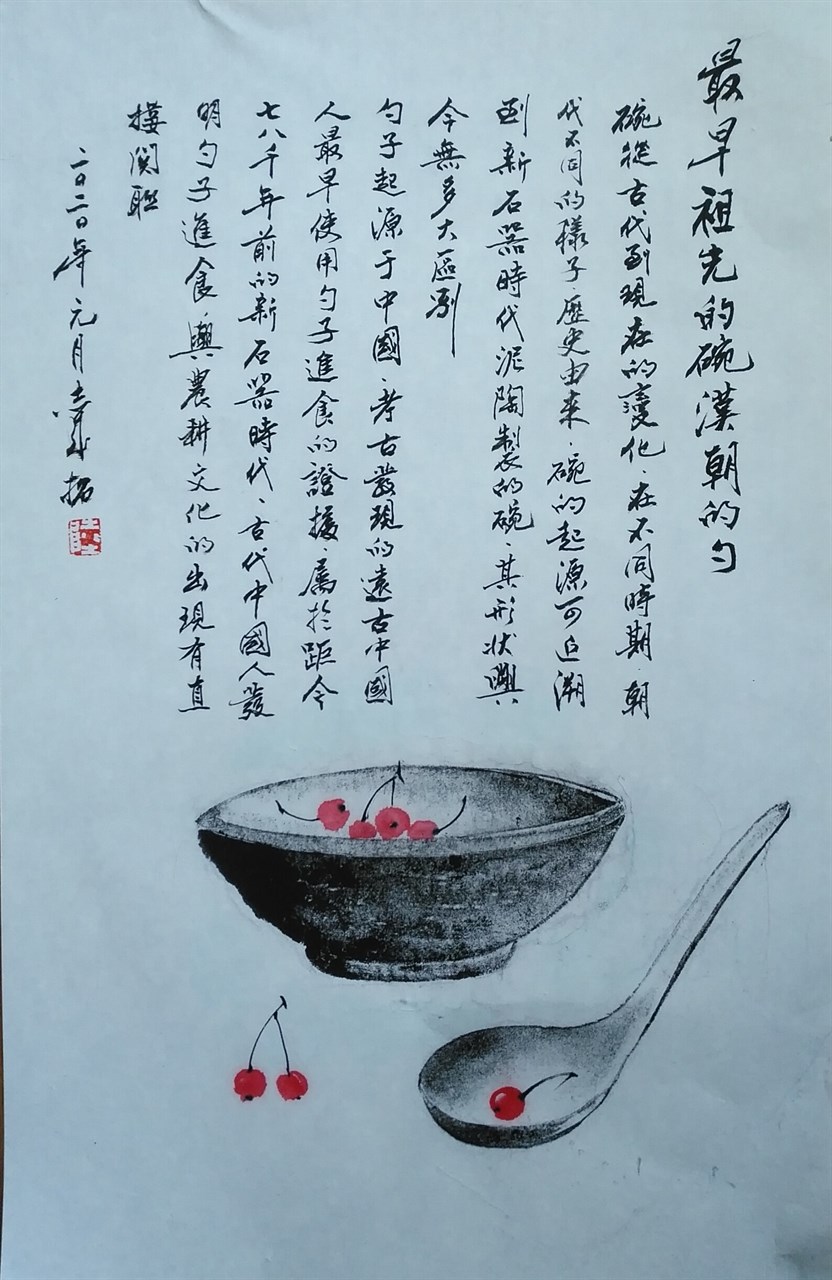 最早祖先的碗漢朝的勺
碗從古代到現在的變化、在不同時期、朝
代不同的樣子、歷史由来、碗的起源可追溯
到新石器時代泥陶製的碗、其形状與
今無多大區別
勺子起源于中國、考古發現的遠古中國
人最早使用勺子進食的證據、屬於距今
七八千年前的新石器時代、古代中國人發
明勺子進食、與農耕文化的出現有直
接関聯
二〇二〇年元月 拓